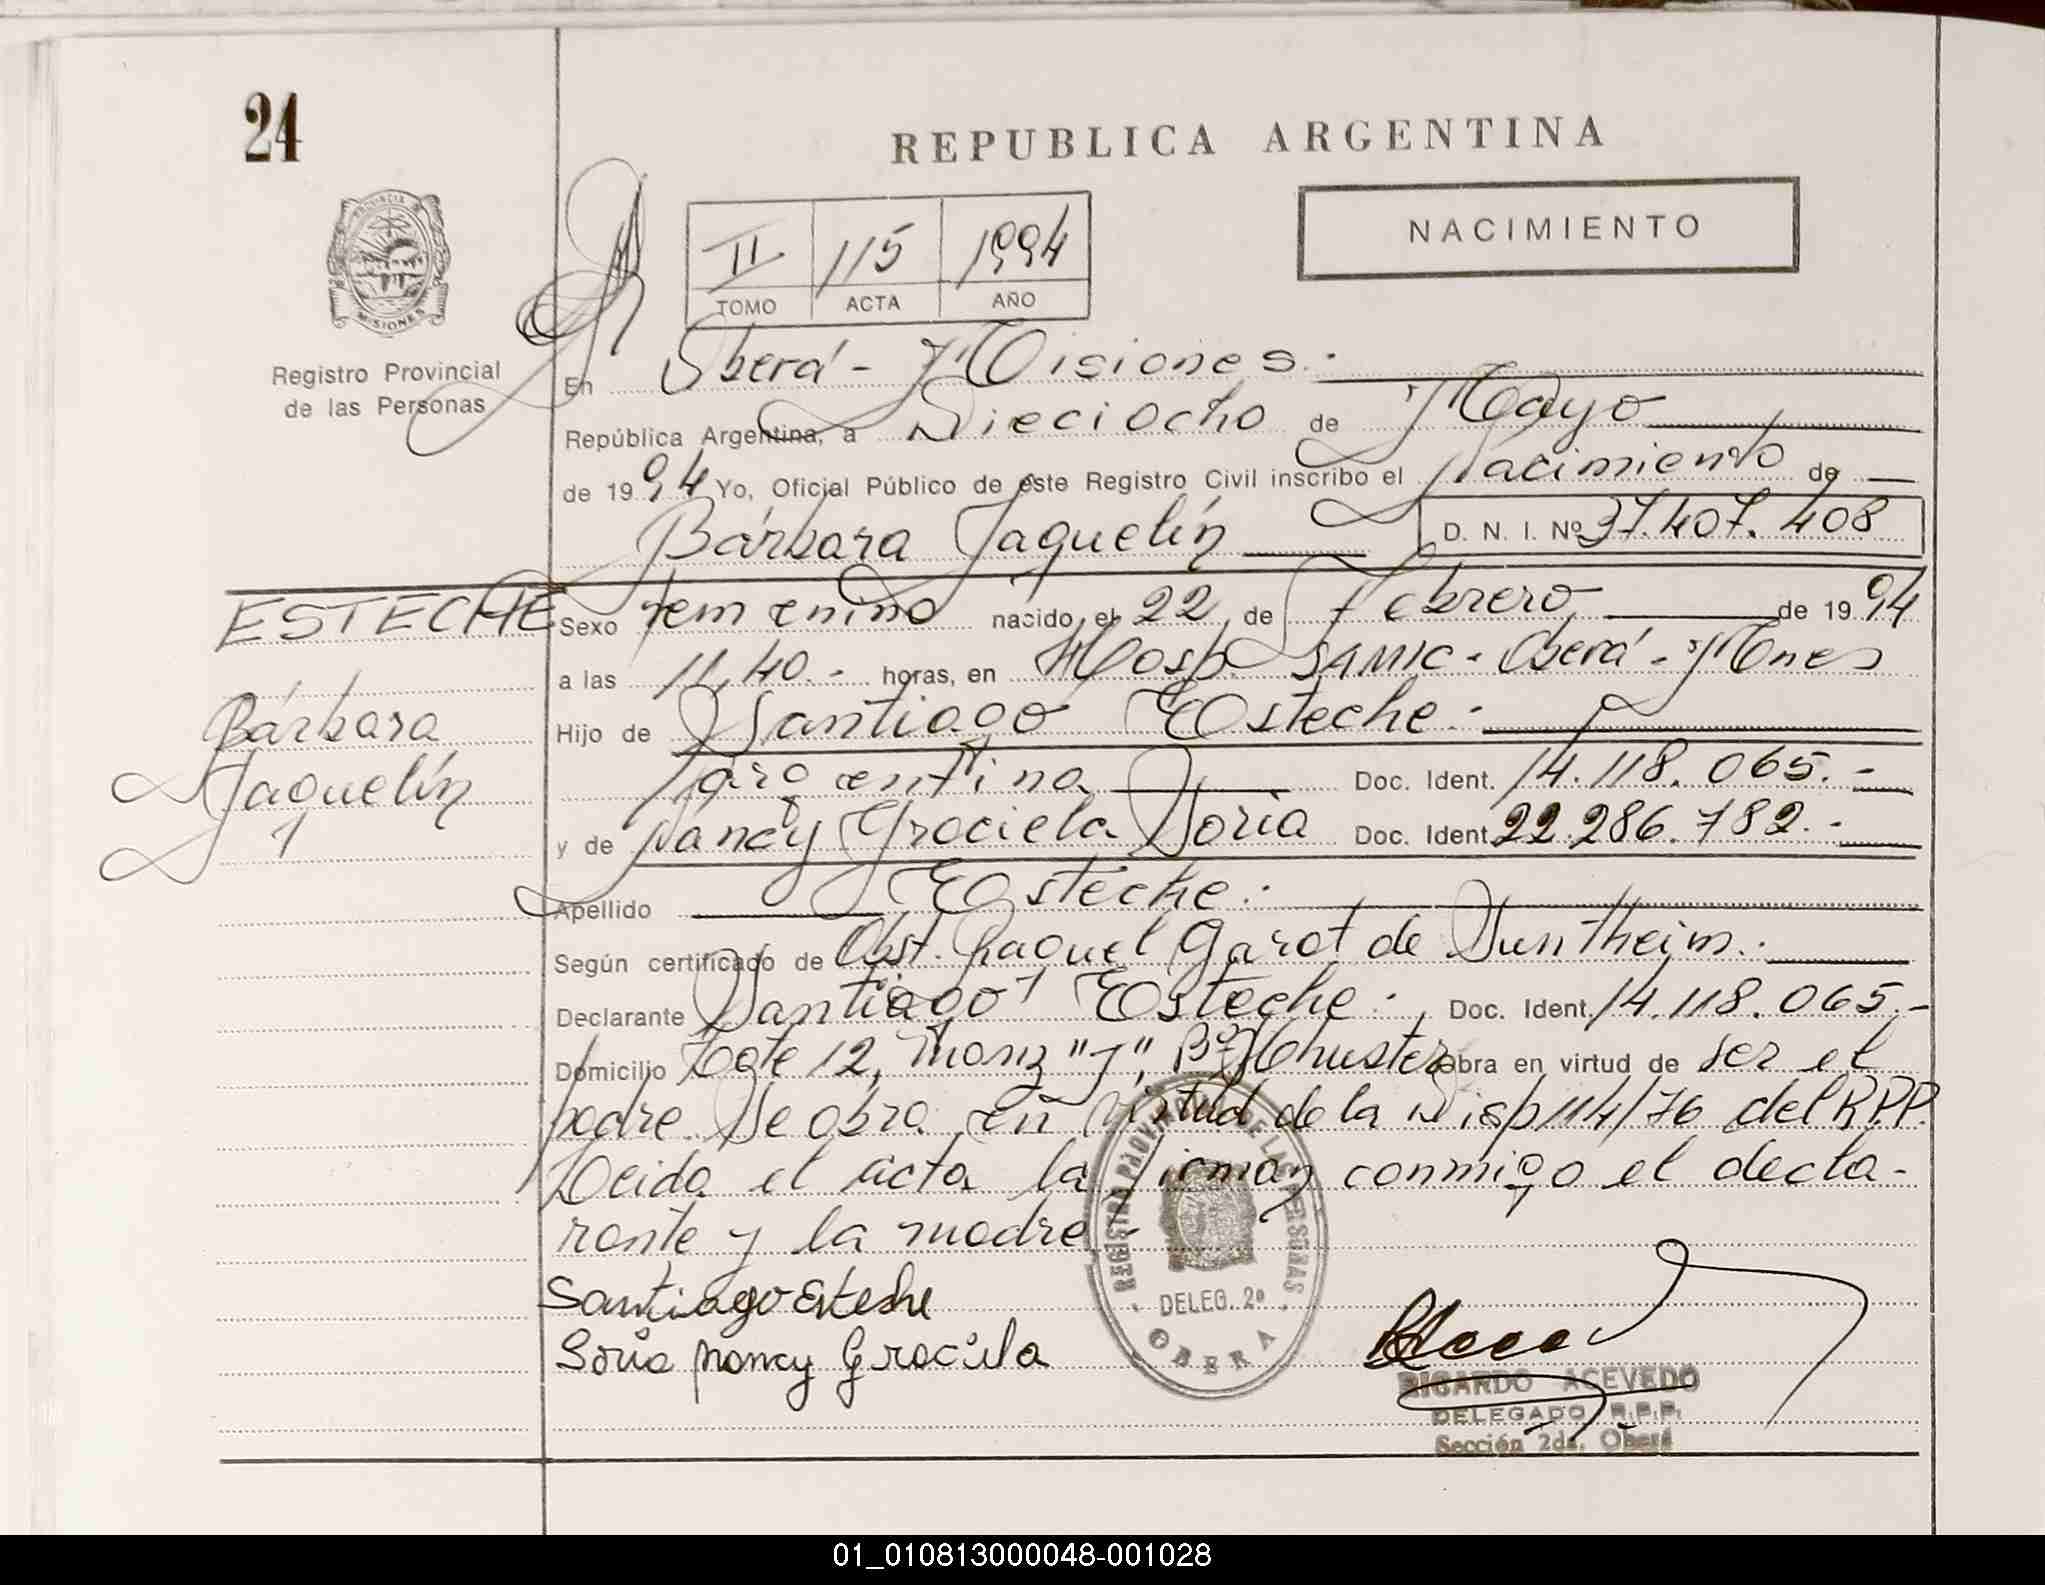 24
REPUBLICA ARGENTINA
PROVINCIA D
MISIONES
Registro Provincial
de las Personas
II 115 1994
TOMO ACTA AÑO
NACIMIENTO
En Oberá - Misiones.-
República Argentina, a Dieciocho de Mayo
de 1994 Yo, Oficial Público de este Registro Civil inscribo el Nacimiento de
Bárbara Jaquelín D. N. I. Nº 37.407.408
ESTECHE
Bárbara
Jaquelín
Sexo femenino nacido el 22 de Febrero de 1994
a las 11,40.- horas, en Hosp. SAMIC - Oberá - Mnes
Hijo de Santiago Esteche.-
Argentina Doc. Ident. 14.118.065.-
y de Nancy Graciela Soria Doc. Ident. 22.286.782.-
Apellido Esteche.
Según certificado de Obst. Raquel Garot de Suntheim.
Declarante Santiago Esteche. Doc. Ident. 14.118.065.-
Domicilio Lote 12, Manz "J", Bº Schuster obra en virtud de ser el
padre. Se obra en virtud de la Disp 114/76 del R.P.P.
Leida el acta la firman conmigo el decla-
rante y la madre.-
Santiago Esteche
Soria Nancy Graciela
REGISTRO PROVINCIAL DE LAS PERSONAS
DELEG. 2º
OBERA
RICARDO ACEVEDO
DELEGADO R.P.P.
Sección 2da. Oberá
01_010813000048-001028